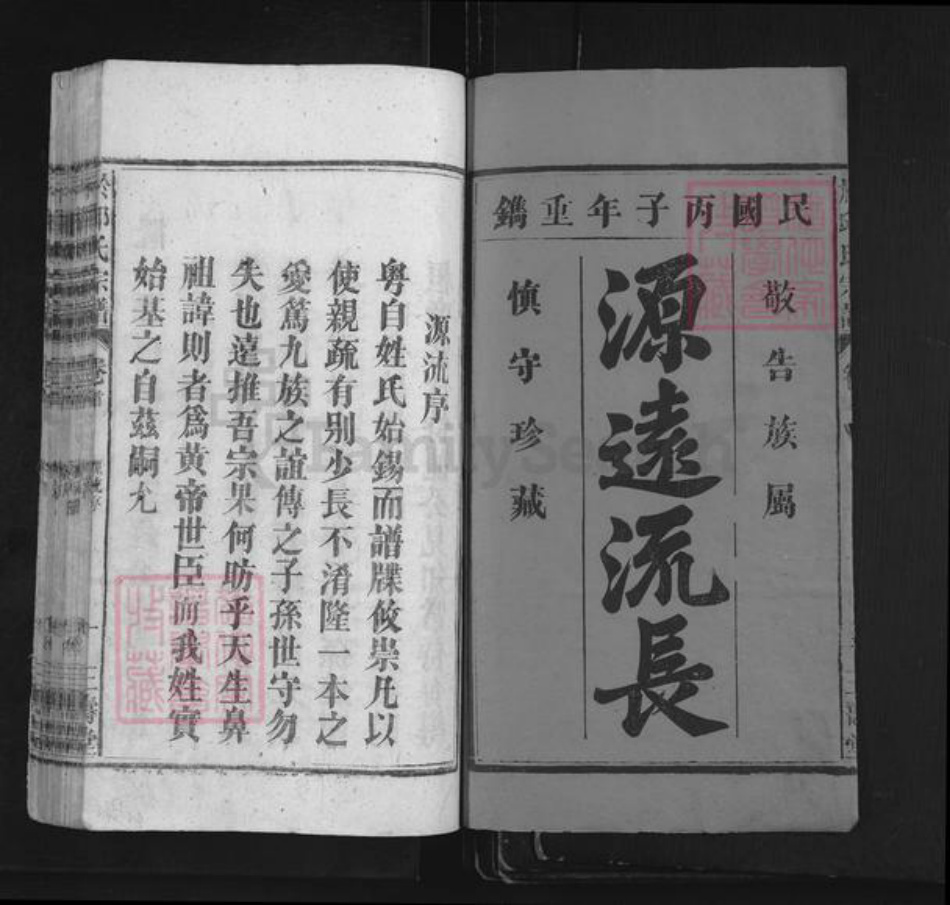 民國丙子年重鐫
敬告族屬
源遠流長
慎守珍藏
源流序
粤自姓氏始錫而譜牒攸崇凡以
使親疏有别少長不淆隆一本之
愛篤九族之誼傳之子孫世守勿
失也遠推吾宗果何昉乎天生鼻
祖諱則者爲黃帝世臣而我姓實
始基之自茲嗣允
氏宗譜
卷首
FamilySearch